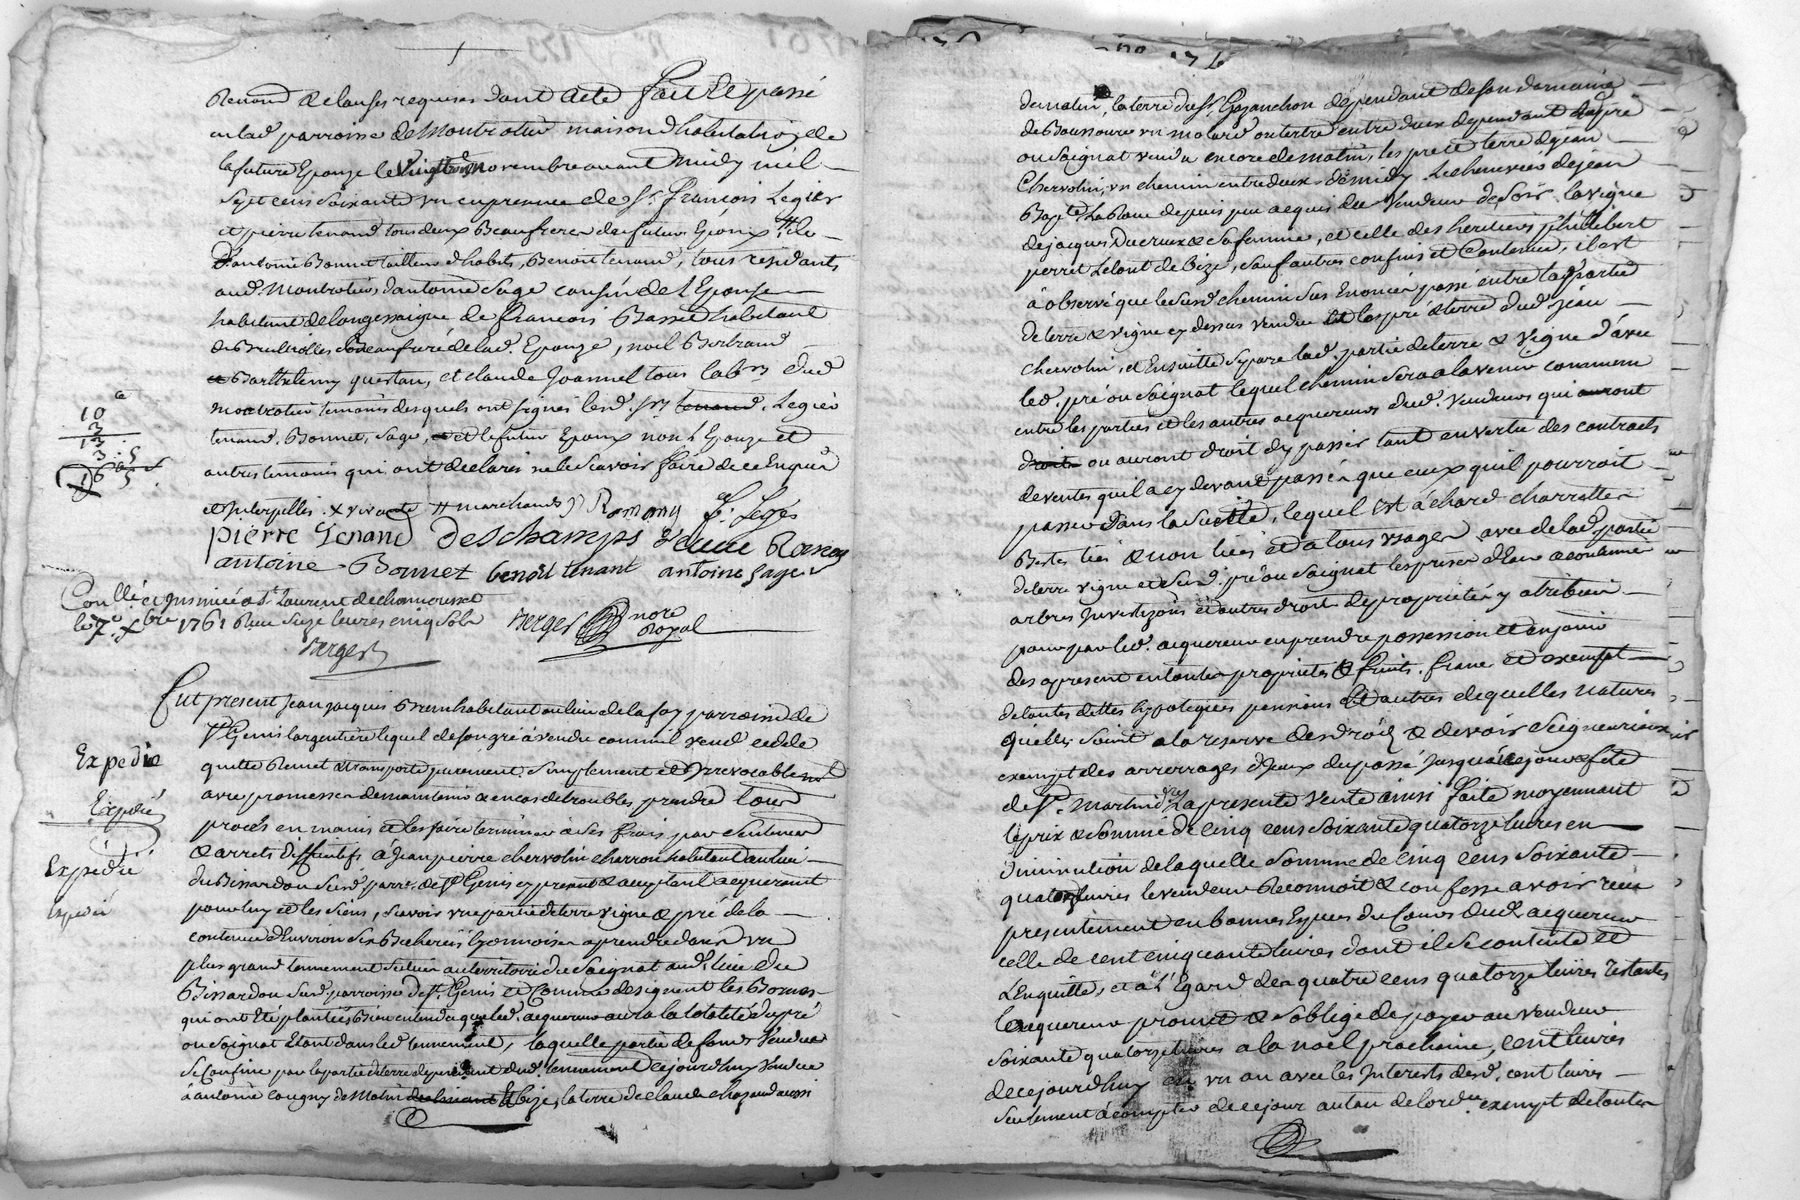 Renond & clauses requises dont acte fait & passé
en lad. parroisse de Montrotier maison d'habitation de
la future Epouze le vingt novembre avant midy mil
sept cens soixante un en presence de Sr. françois Legier
et pierre tenand tous deux Beaufreres du futur Epoux #
d'antoine Bonnet tailleur d'habits, Benoit tenand, tous residants
aud. Montrotier, d'antoine Sage cousin de l'Epouse
habitant de longessaigne de françois Bassed habitant
de Brullioles Beaufrere de lad. Epouze, noel Bertrand
Barthelemy questan, et claude Joannel tous lab.rs dud.
montrotier temoins desquels ont signés lesd. Srs Legier
tenand, Bonnet, Sage, et le futur Epoux non l'Epouze et
autres temoins qui ont declarés ne le scavoir faire de ce Enquis
et Interpellés. # marchands Romany f. Leger
pierre Tenand Deschamps
antoine Bonnet benoit tenant antoine Sage
10
3
13
3: 5
16 5
Conllé et Insinué a St. Laurent de chamousset
le 7e. Xbre 1761 Reçu Seize livres cinq Sols
Verger
Verger nore Royal
Fut present Jean jacques Brun habitant au lieu de la fay parroisse de
St. Genis l'argentiere lequel de son gré à vendu comme il vend cedde
quitte Remet & transporte purement, Simplement et Irrevocablement
avec promesse de maintenir & en cas de troubles, prendre tous
procès en mains et les faire terminer à ses frais par sentences
& arrets diffinitifs à Jean pierre chervolin charron habitant au lieu
du Bissardon susd. parr. de St. Genis cy present & acceptant acquereur
pour luy et les siens, scavoir une partie de terre vigne & pré de la
contenue d'Environ six Bicherées lyonnoises a prendre dans un
plus grand tennement situé au territoire du Saignat aud. lieu du
Bissardon susd. parroisse de St. Genis et Comme designent les Bornes
qui ont été plantées, Bien entendu que led. acquereur aura la totalité du pré
ou Saignat Etant dans led. tennement, laquelle partie de fonds Vendue
se Confine par la partie de terre dependant dud. tennement cejourd'huy Vendue
à antoine cougny de Matin & bize, la terre de claude chazaud aussi
Expedié
Expedié
Expedié
Expedié
de matin, la terre du Sr. Gojanchon dependant de son domaine
de Boussourre un molard ou tertre entre deux dependant du pré
ou Saignat vendu encore de matin, les pré & terre de jean
Chervolin, un chemin entre deux de midy. Le cheneviere de jean
Bapte. La Roue depuis peu acquis du Vendeur de soir. la vigne
de jacques Ducreux & sa femme, et celle des heritiers philibert
perret Le tout de Bize, sauf autres confins et Contenue, il est
à observé que le susd. chemin sus Enoncé passe entre la partie
de terre & vigne cy dessus vendue et les pré & terre dud. jean
chervolin, et Ensuitte separe lad. partie de terre & Vigne d'avec
led. pré ou Saignat lequel chemin sera a l'avenir commun
entre les parties et les autres acquereurs dud. vendeur qui auront
ou auront droit d'y passer tant en vertu des contracts
de ventes qu'il a cy devant passé que ceux qu'il pourroit
passer dans la suitte, lequel est à chard charretter
Bestes liés & non liés et a tous usages avec de lad. partie
de terre vigne et susd. pré ou Saignat les prises d'Eau accoutumées
arbres Investizons et autres droits de proprieté y attribués
pour par led. acquereur en prendre possession et en jouir
des a present en toutes proprietes & fruits, franc et exempt
de toutes dettes hypoteques pensions et autres de quelles natures
qu'elles soient a la reserve des Droits & devoirs seigneuriaux
exempt des arrerages d'Iceux du passé Jusqu'à ce jour & fete
de St. Martin dr. La presente vente ainsi faite moyennant
le prix & somme de cinq cens soixante quatorze livres en
diminution de laquelle somme de cinq cens soixante
quatorze livres le vendeur Reconnoit & confesse avoir reçu
presentement en bonnes Especes du Cours dud. acquereur
celle de cent cinquante livres dont il se contente et
L'Enquitte, et à l'Egard des quatre cens quatorze livres restantes
L'acquereur promet & s'oblige de payer au vendeur
soixante quatorze livres a la noel prochaine, cent livres
de cejourd'huy en un an avec les Interests desd. cent livres
seulement à compter de ce jour au tau de l'ordce. exempt de toutes